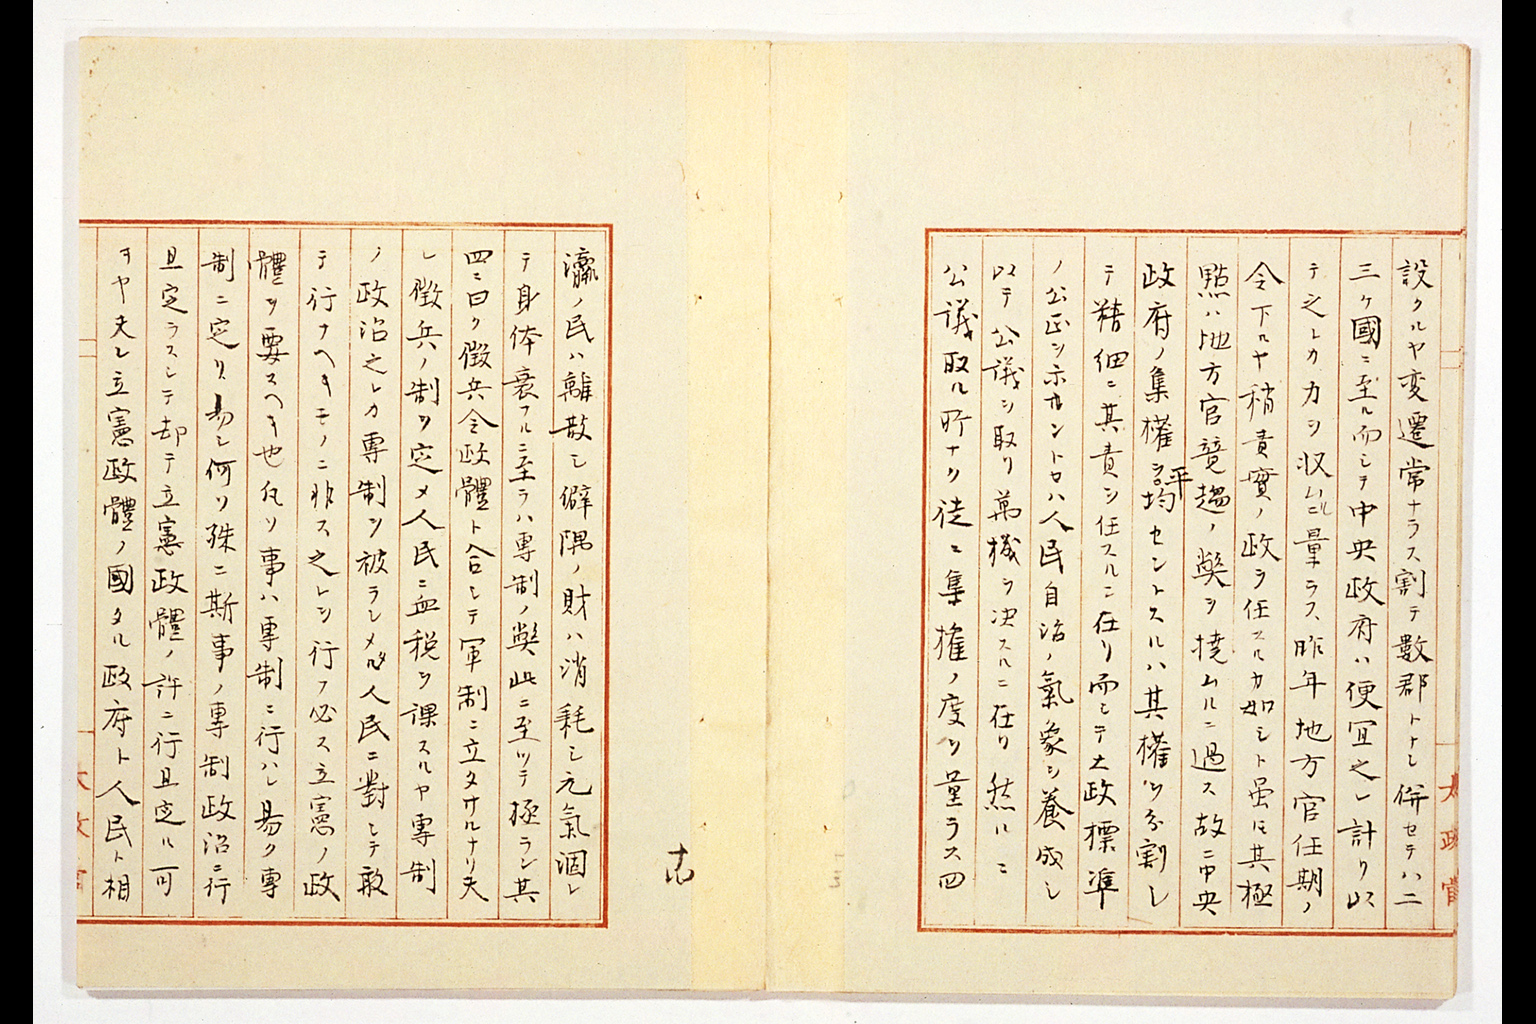 設クルヤ変遷常ナラス割テ數郡トナシ併セテハ二
三ケ國ニ至ル而シテ中央政府ハ便宜之レ計リ以
テ之レカ力ヲ収ムルニ量ラス昨年地方官任期ノ
令下ルヤ稍責實ノ政ヲ任スルカ如シト虽ﾓ其極
點ハ地方官競趨ノ弊ヲ撓ムルニ過ス故ニ中央
政府ノ集權ヲ平均セントスルハ其權ヲ分割シ
テ精細ニ其責ヲ任スルニ在リ而シテ大政標準
ノ公正ヲ示サントセハ人民自治ノ氣象ヲ養成シ
以テ公議ヲ取リ萬機ヲ決スルニ在リ然ルニ
公議取ル所ナク徒ニ集権ノ度ヲ量ラス四
瀛ノ民ハ離散シ僻隅ノ財ハ消耗シ元氣涸レ
テ身体衰フルニ至ラハ専制ノ弊此ニ至ツテ極ラン其
四ニ曰ク徴兵令政體ト合シテ軍制ニ立タサルナリ夫
レ徴兵ノ制ヲ定メ人民ニ血税ヲ課スルヤ専制
ノ政治之レカ専制ヲ被ラシメタル人民ニ對シテ敢
テ行ナヘキモノニ非ス之レヲ行フ必ス立憲ノ政
體ヲ要スヘキ也凡ソ事ハ専制ニ行ハレ易ク専
制ニ定リ易シ何ソ殊ニ斯事ノ専制政治ニ行
且定ラスシテ却テ立憲政體ノ許ニ行且定ル可
キヤ夫レ立憲政體ノ國タル政府ト人民ト相
太政官